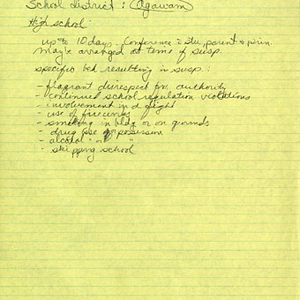 School District: Agawam
High school:
up to 10 days. Conference c̄ stu, parent & prin.
may be arranged at time of susp.
specific beh resulting in susp.:
- flagrant disrespect for authority
- continued school regulation violations
- involvement in a fight
- use of firearms
- smoking in bldg or on grounds
- drug use or possession
- alcohol " or "
- skipping school